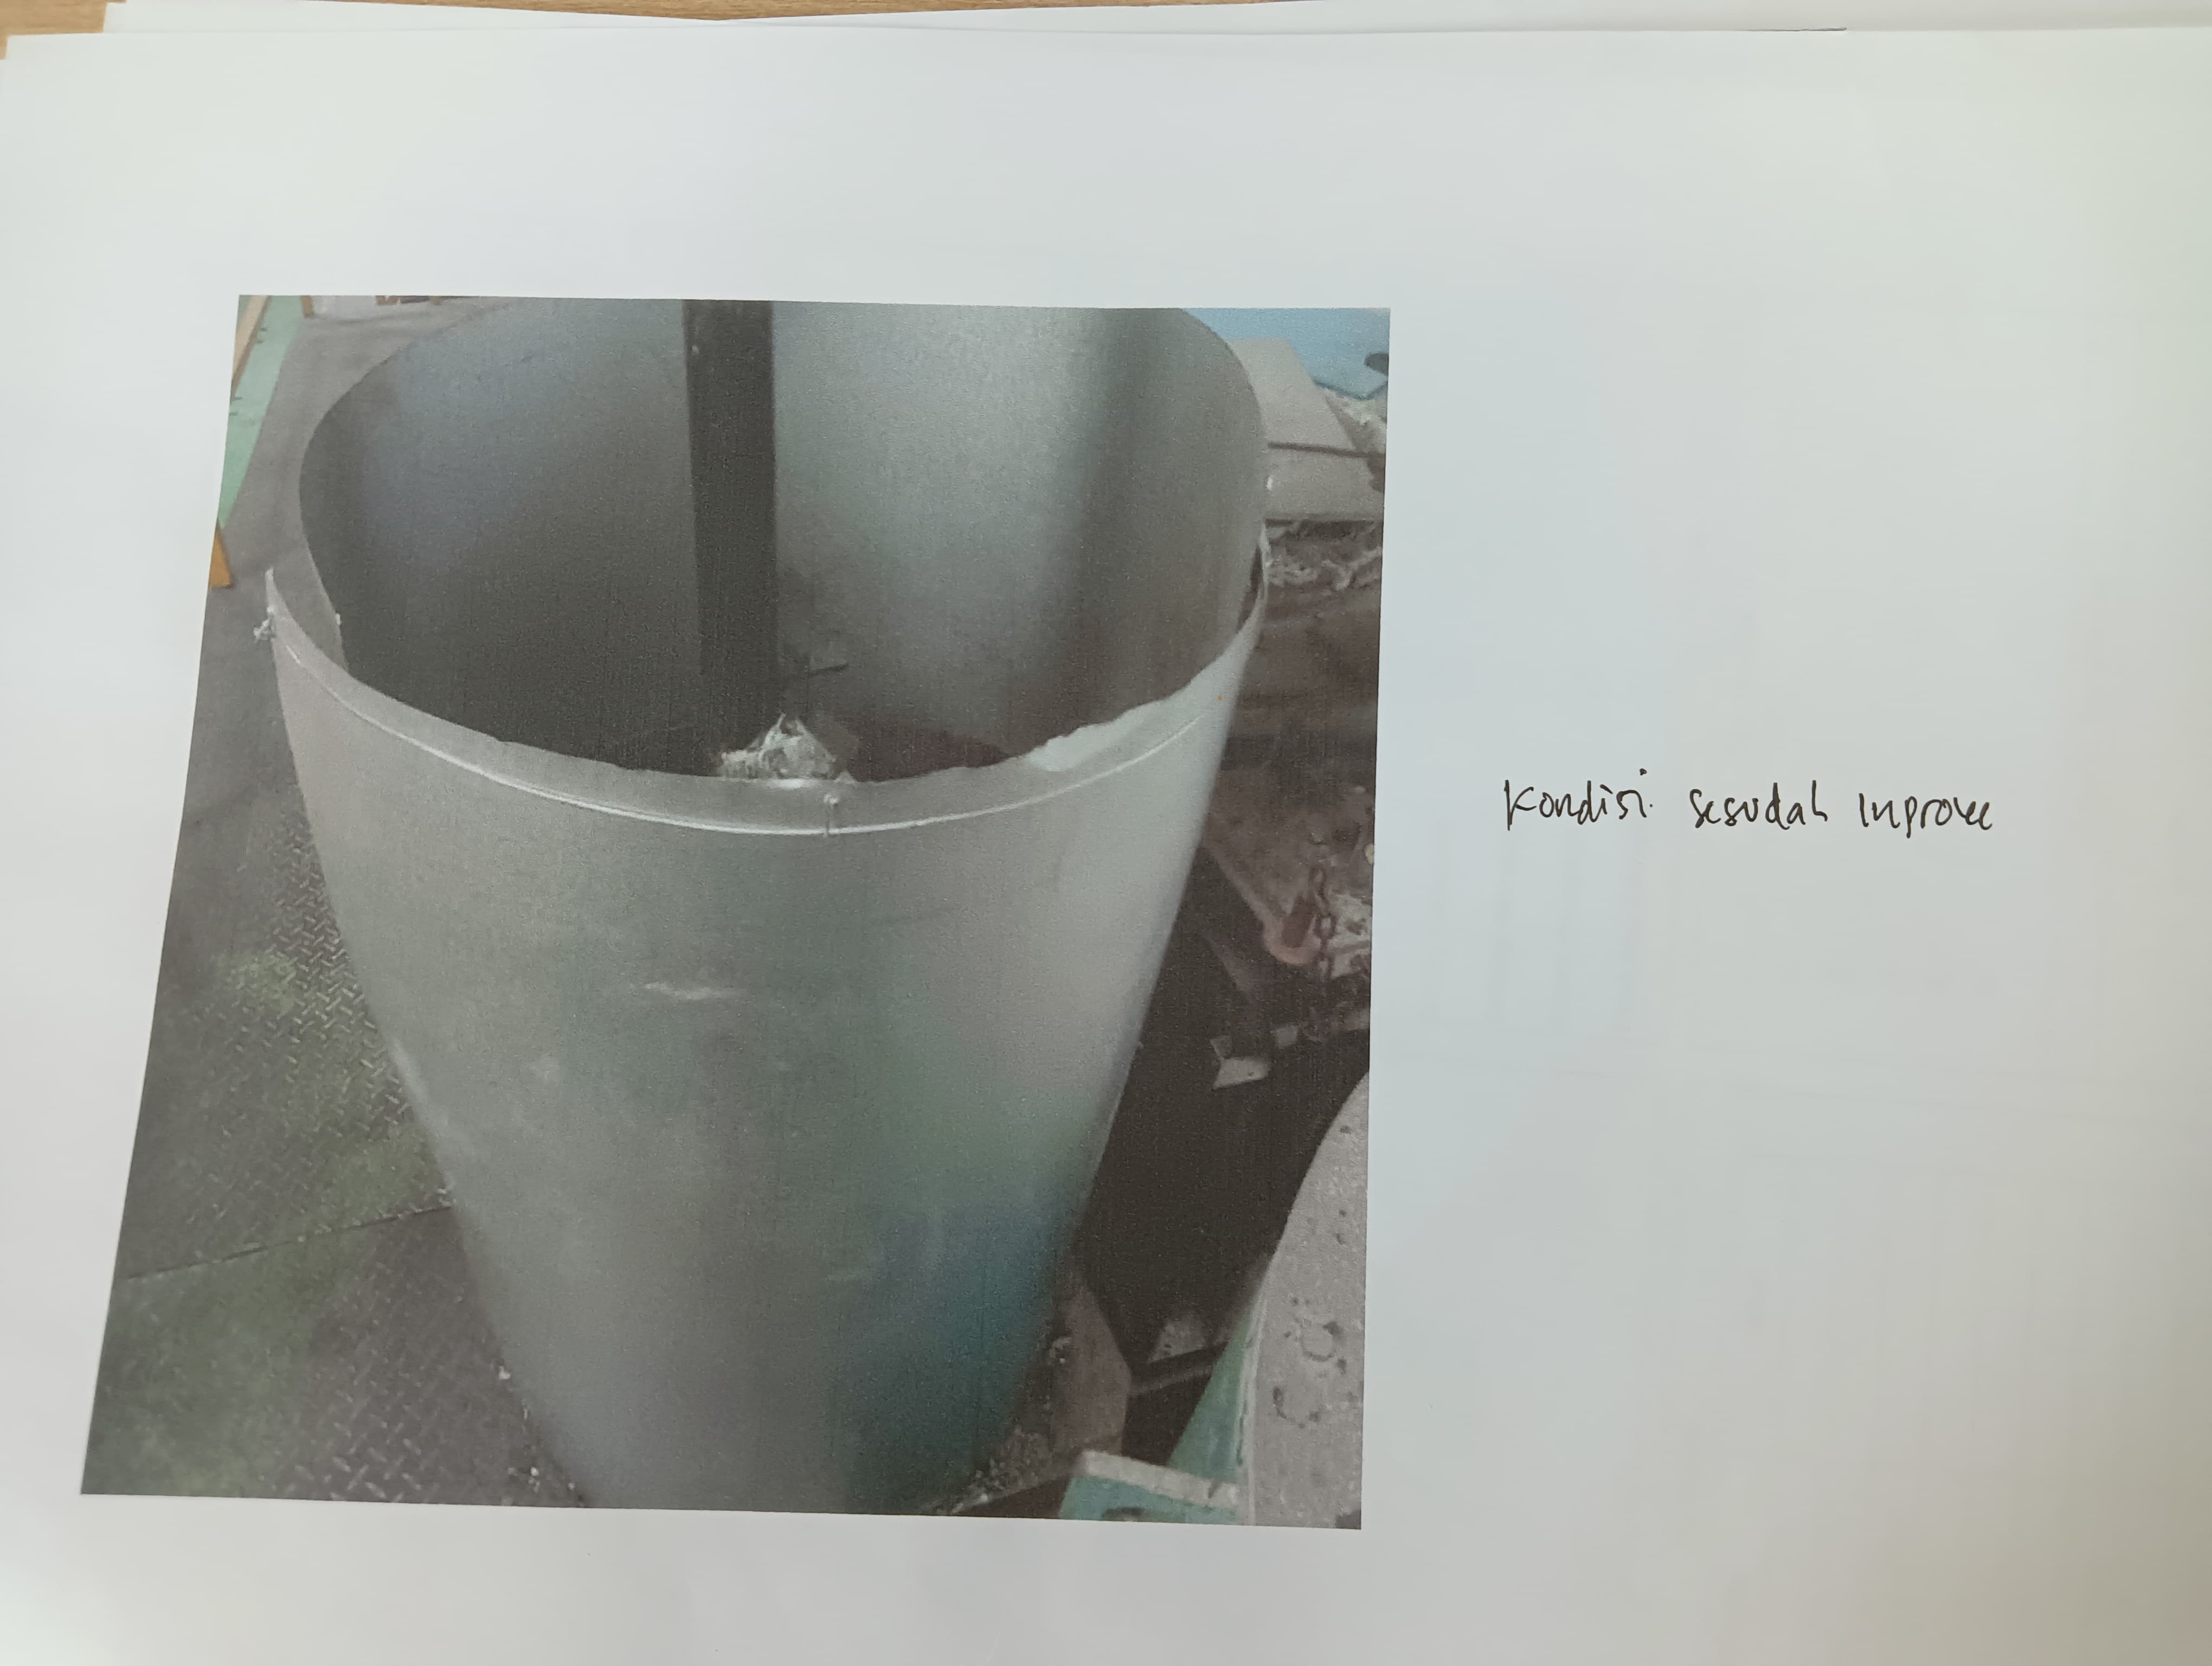 Kondisi sesudah Inprove